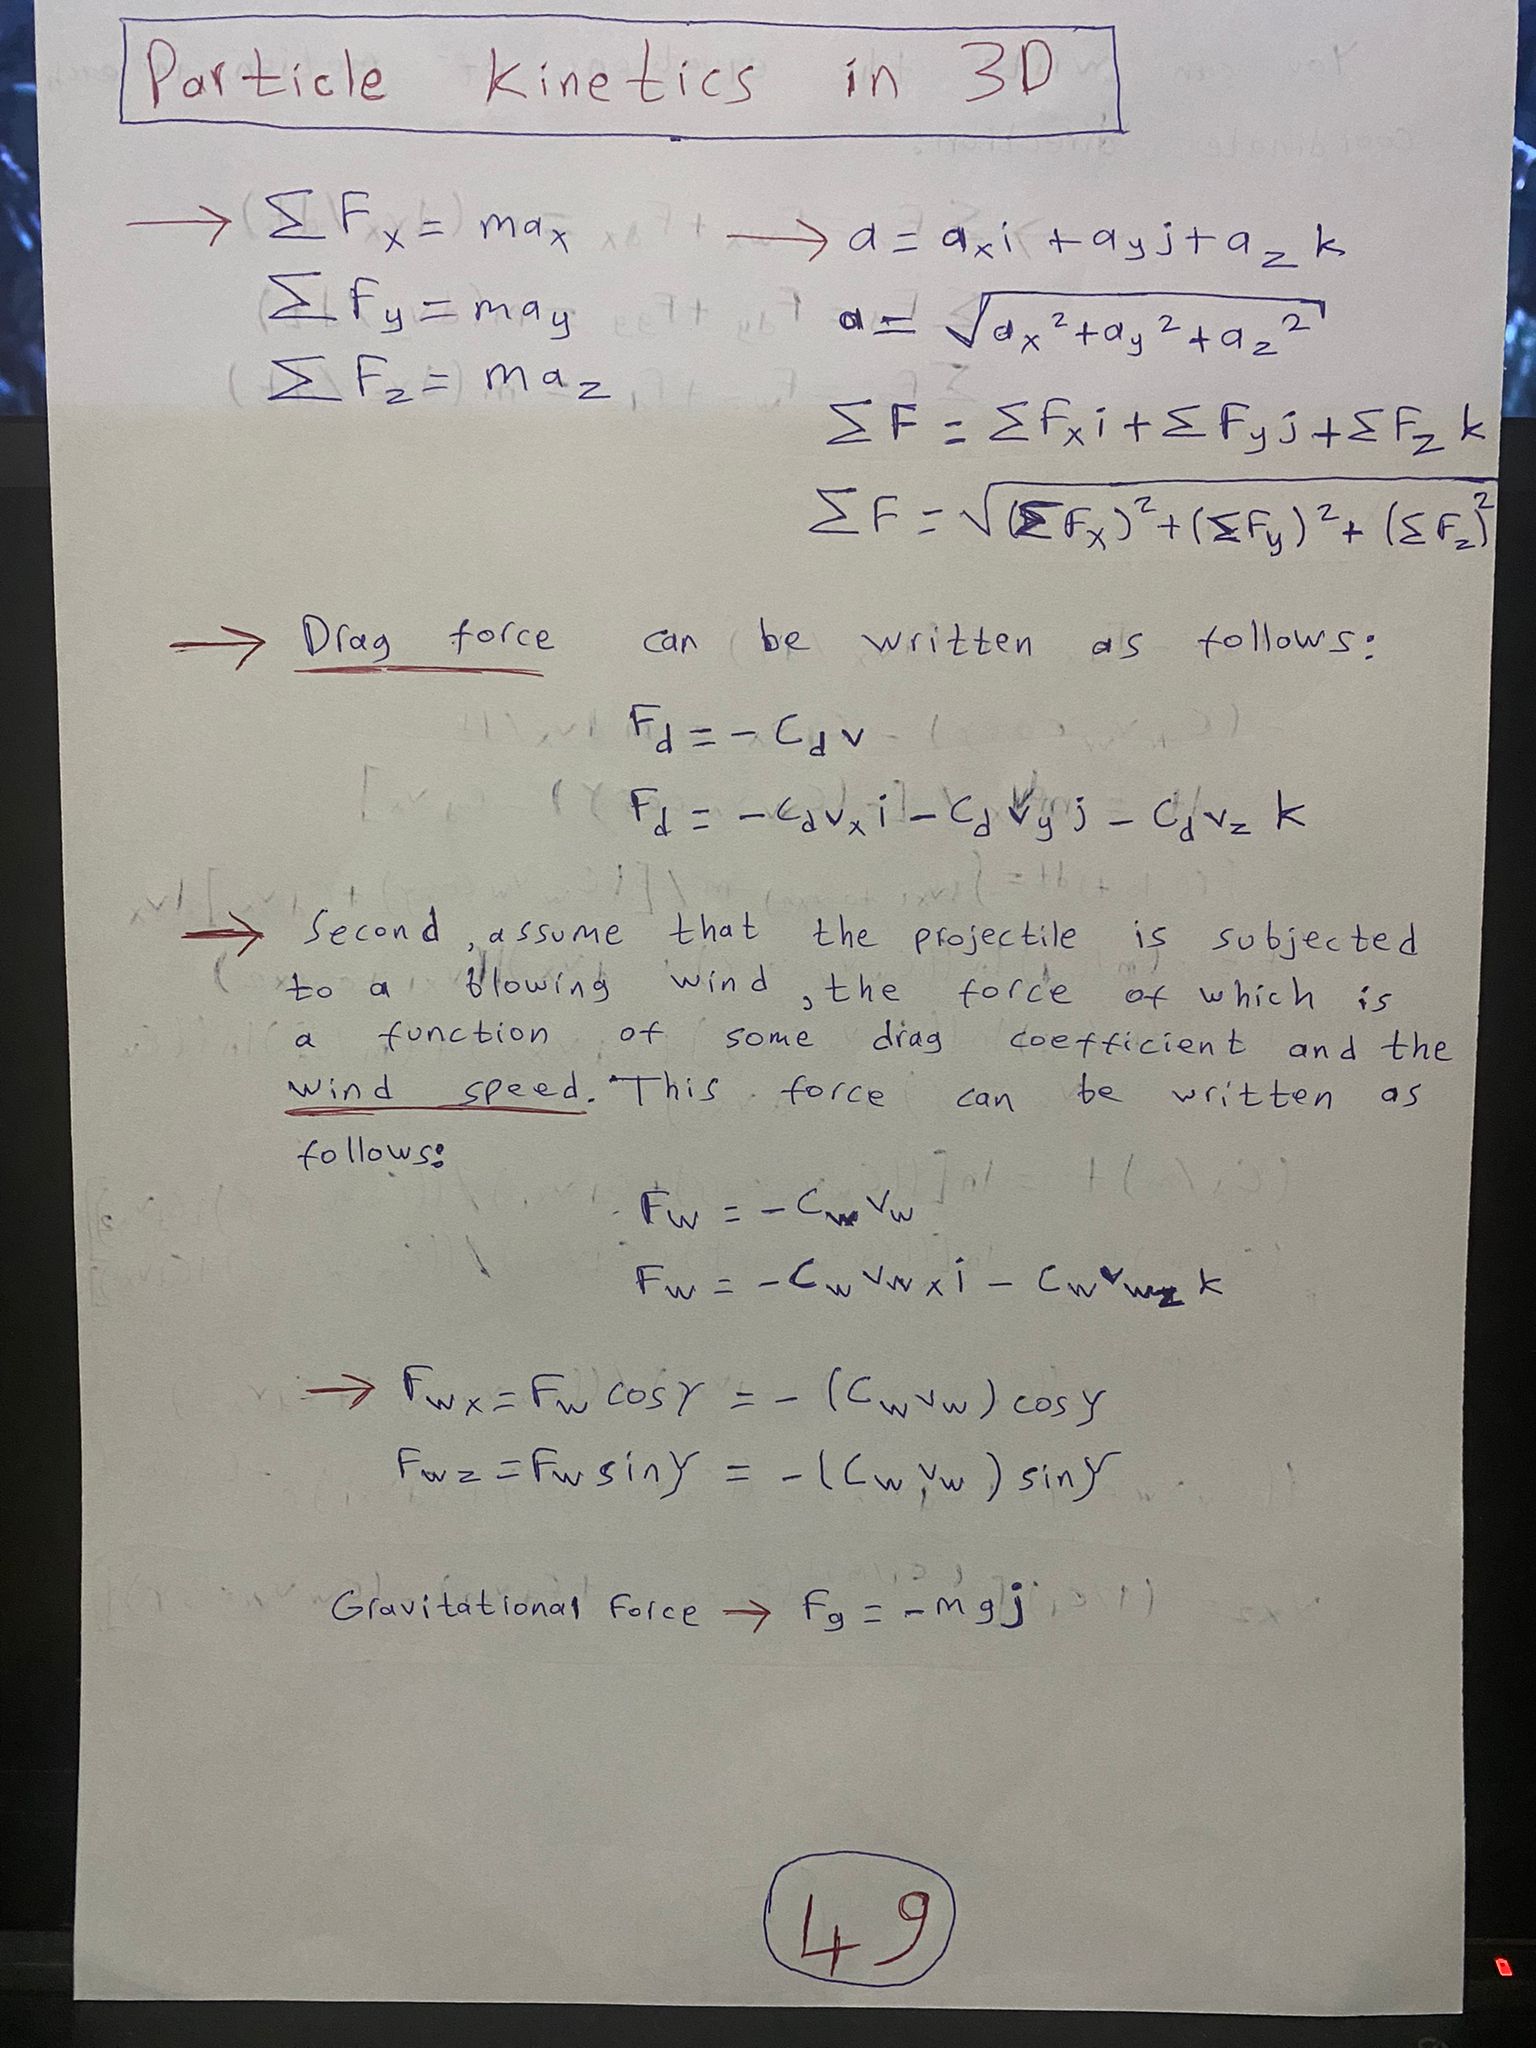 Particle Kinetics in 3D
→ ΣFx = max → a = axi + ayj + az k
ΣFy = may a = √ax²+ay²+az²
ΣFz = maz
ΣF = ΣFxi + ΣFyj + ΣFz k
ΣF = √(ΣFx)²+(ΣFy)²+(ΣFz)²
→ Drag force can be written as follows:
Fd = -Cdv
Fd = -Cdvxi - Cdvyj - Cdvz k
→ Second, assume that the projectile is subjected
to a blowing wind, the force of which is
a function of some drag coefficient and the
wind speed. This force can be written as
follows:
Fw = -Cwvw
Fw = -Cwvwxi - Cwvwz k
→ Fwx = Fw cosγ = -(Cwvw) cosγ
Fwz = Fw sinγ = -(Cwvw) sinγ
Gravitational Force → Fg = -mgj
49